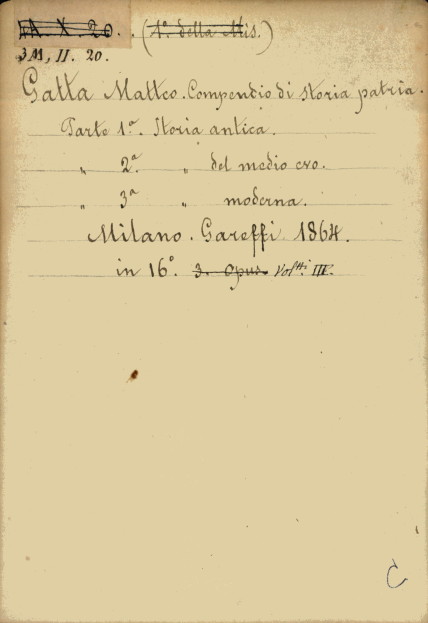 A. X. 20. . (1º. della Mis.)
3M, II. 20.
Gatta Matteo. Compendio di storia patria.
Parte 1ª. Storia antica.
„ 2ª. „ del medio evo.
„ 3ª „ moderna.
Milano. Gareffi 1864.
in 16º. 3. Opus. Vol.tti III.
C